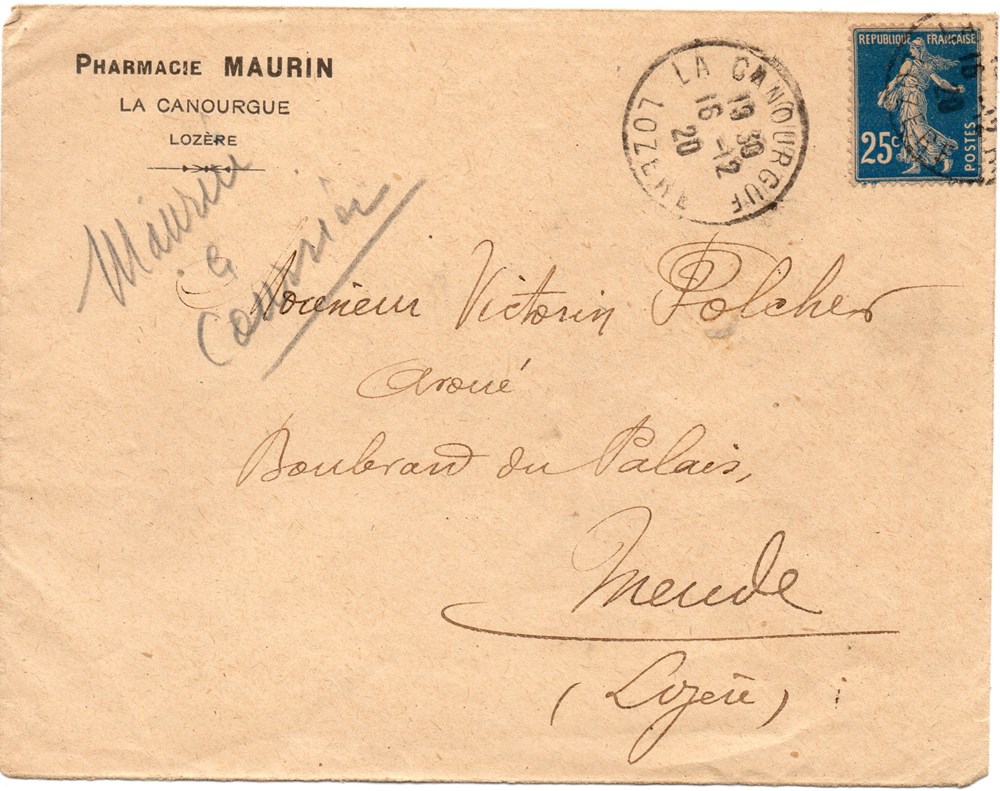 PHARMACIE MAURIN
LA CANOURGUE
LOZÈRE
LA CANOURGUE
LOZERE
19 30
16 -12
20
REPUBLIQUE FRANÇAISE
25c
POSTES
16
20
Maurin
Monsieur Victorin Polcher
avoué
Boulevard du Palais,
Mende
(Lozère)